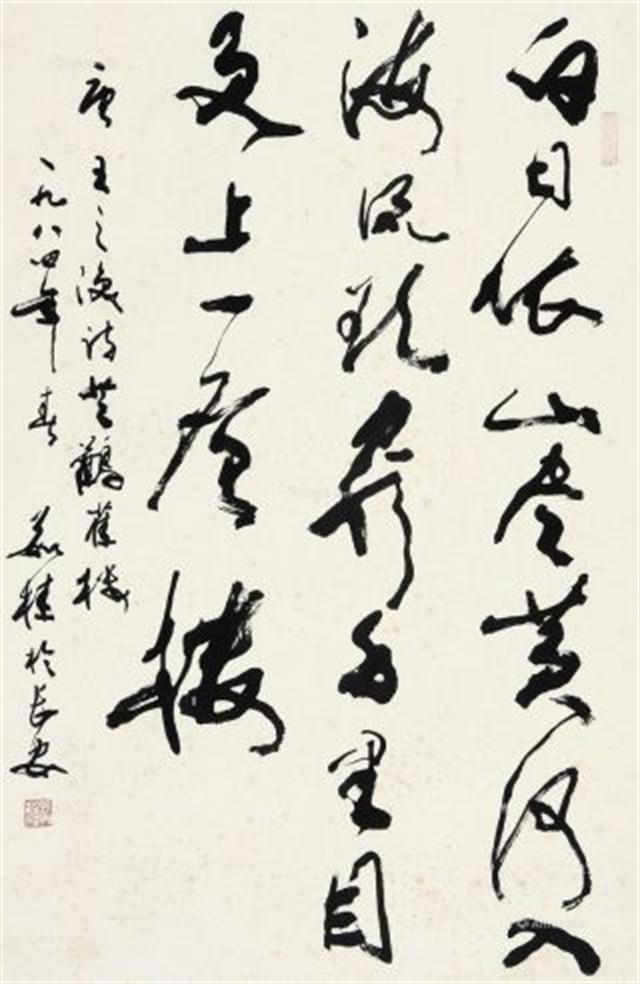 白日依山尽黄河入
海流欲穷千里目
更上一层楼
唐王之涣诗登鹳雀楼
一九八四年春茹桂于长安